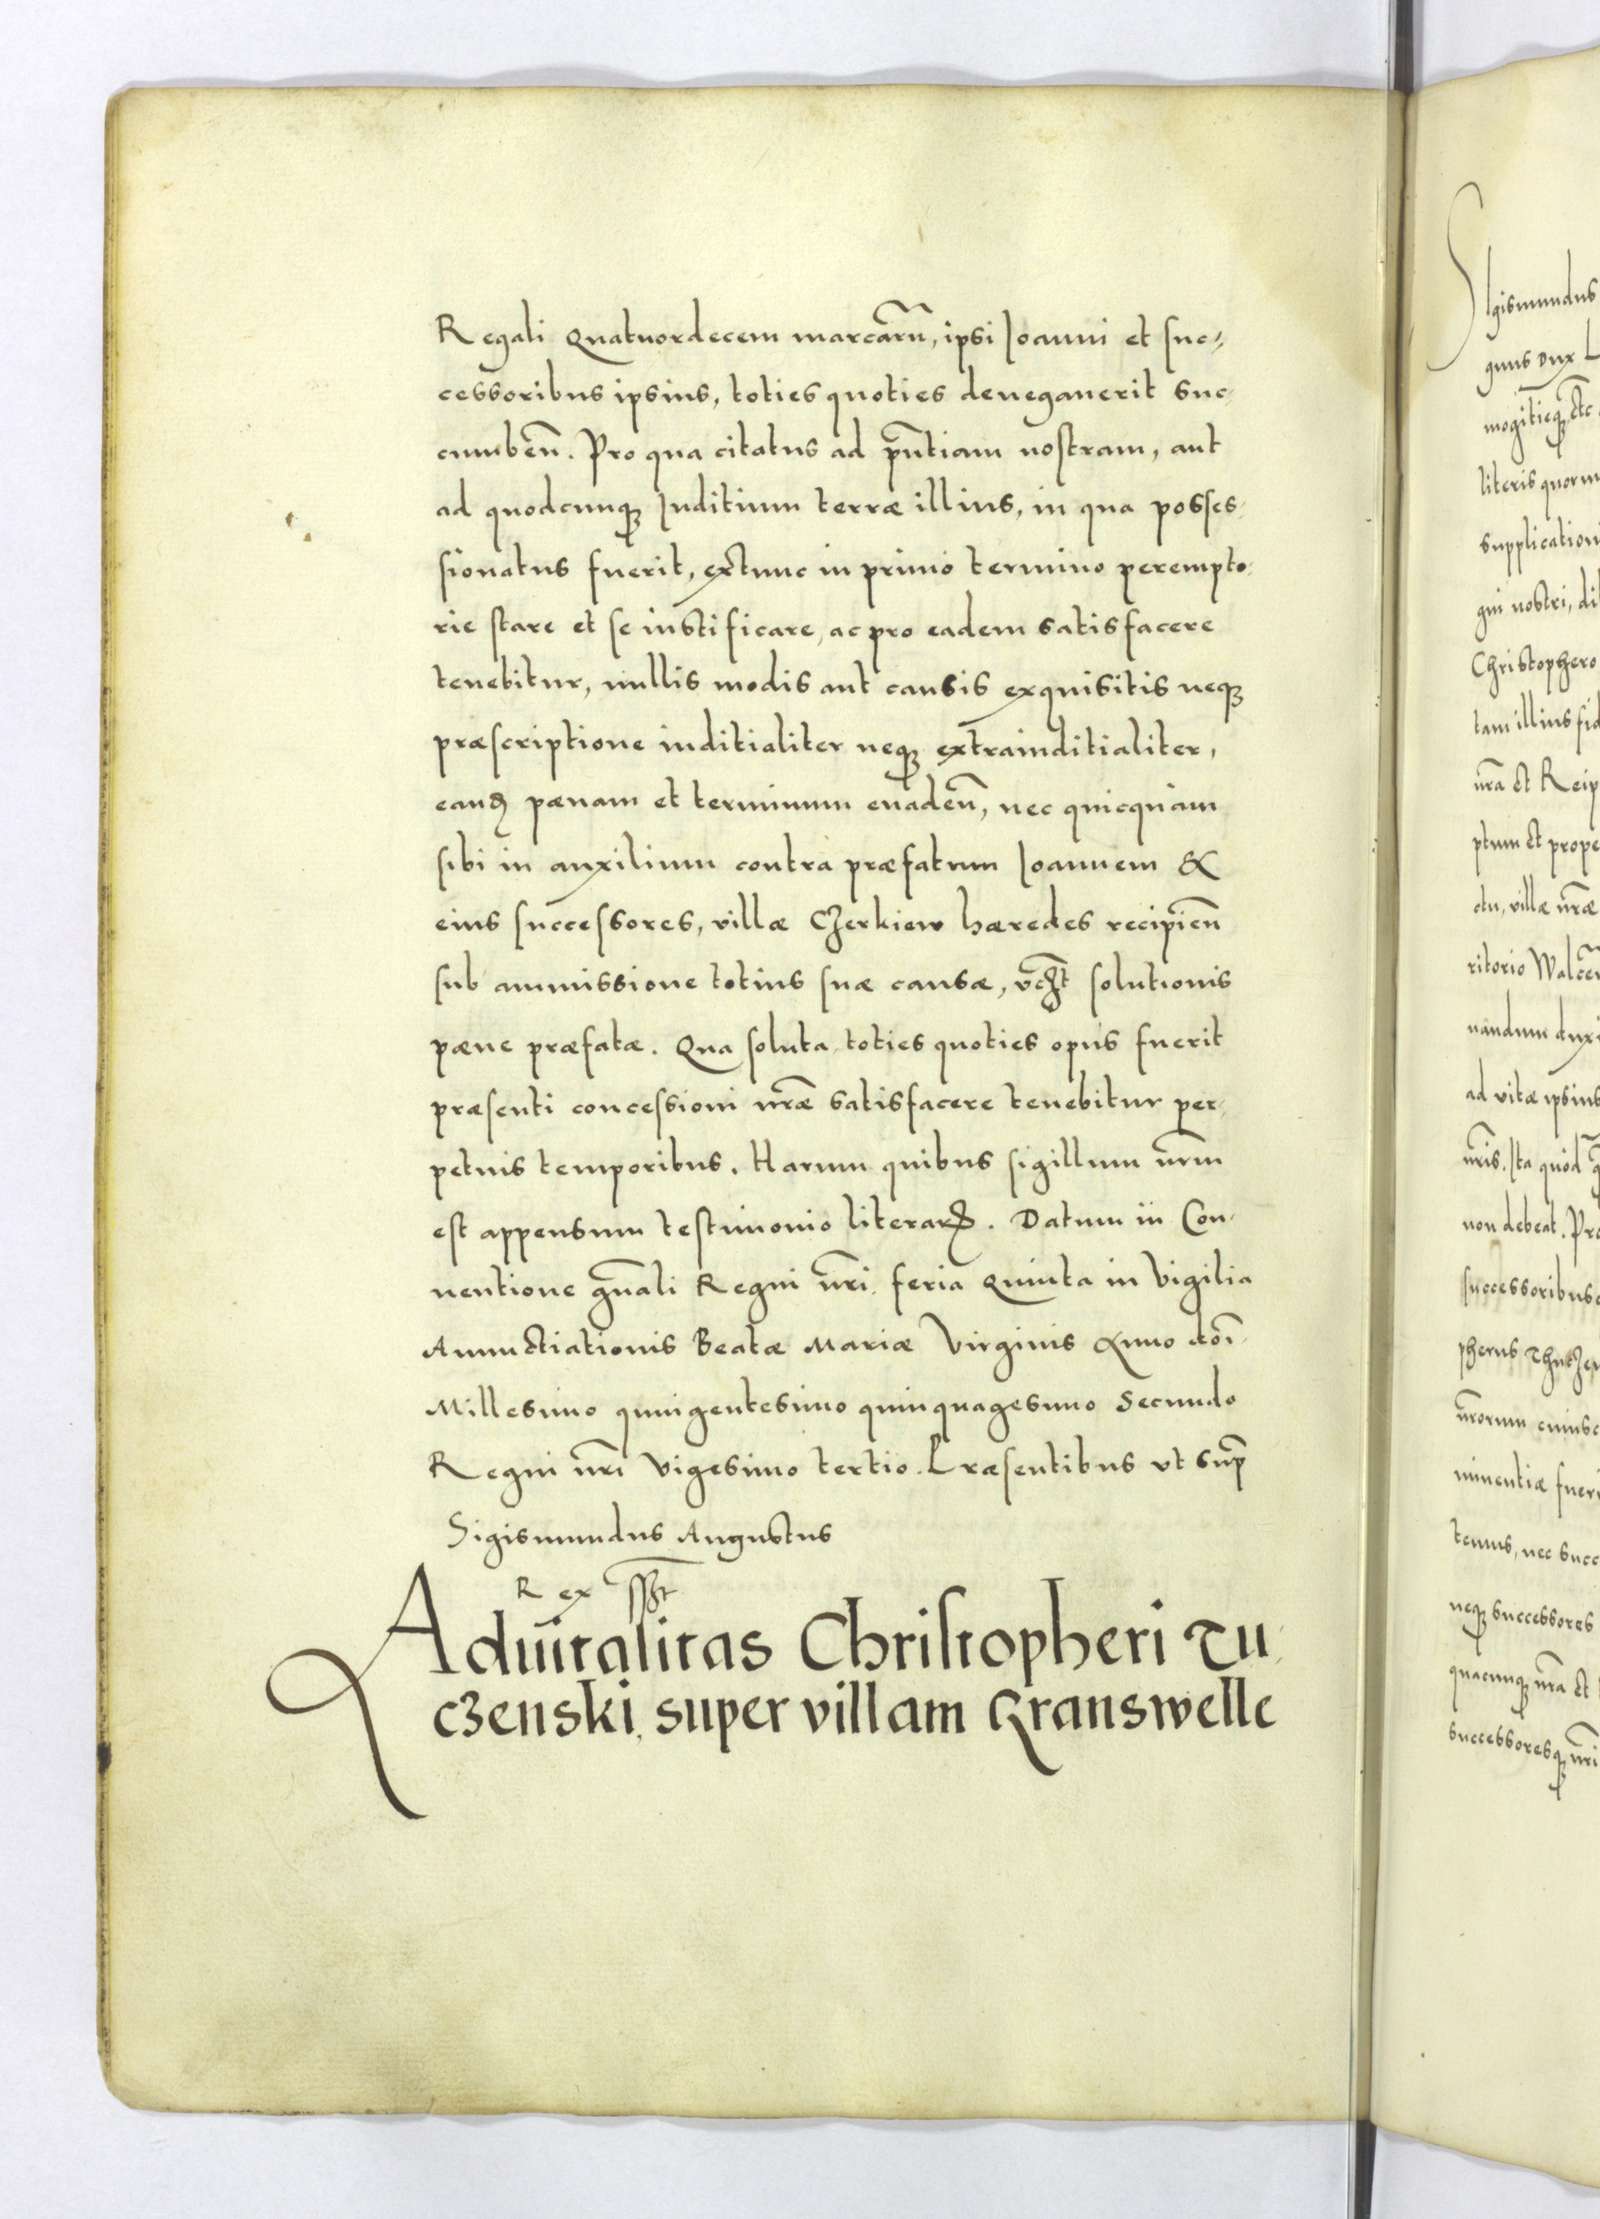 Regali Quatuordecem marcarū, ipsi Joanni et suc-
cessoribus ipsius, toties quoties denegauerit suc-
cumbeñ. Pro qua citatus ad pñtiam nostram, aut
ad quodcunq Juditium terræ illius, in qua posses-
sionatus fuerit, extunc in primo termino perempto-
rie stare et se iustificare, ac pro eadem satisfacere
tenebitur, nullis modis aut causis exquisitis neq
præscriptione iuditialiter neq extraiuditialiter,
eand pænam et terminum euadeñ, nec quicquam
sibi in auxilium contra præfatum Joannem &
eius successores, villæ Czerkiew hæredes recipieñ
sub ammissione totius suæ causæ, solutionis
pæne præfatæ. Qua soluta toties quoties opus fuerit
præsenti concessioni nr̃æ satisfacere tenebitur per-
petuis temporibus. Harum quibus sigillum nr̃m
est appensum testimonio literarꝝ. Datum in Con-
uentione gñali Regni nr̃i feria Quinta in Vigilia
Annuctiationis Beatæ Mariæ Virginis Anno dñi
Millesimo quingentesimo quinquagesimo Secundo
Regni nr̃i Vigesimo tertio. Præsentibus vt sup
Sigismundus Augustus
Rex sszt
Aduitalitas Christopheri Tu-
czenski super villam Granswelle
Sigismundus
gnus Dux L
mogitieq etc
literis quorum
supplication
gni nostri, di
Christophero
tam illius fid
nr̃a et Reip
ptum et prope
ctu, villæ nr̃æ
ritorio Walcen
nandum duxi
ad vitæ ipsius
nr̃is. Ita quod
non debeat. Pro
successoribus
pherus Thucze
nr̃orum cuius
minentiæ fueri
temus, nec succ
neq successores
quacunq nr̃a et
successoresq nr̃i